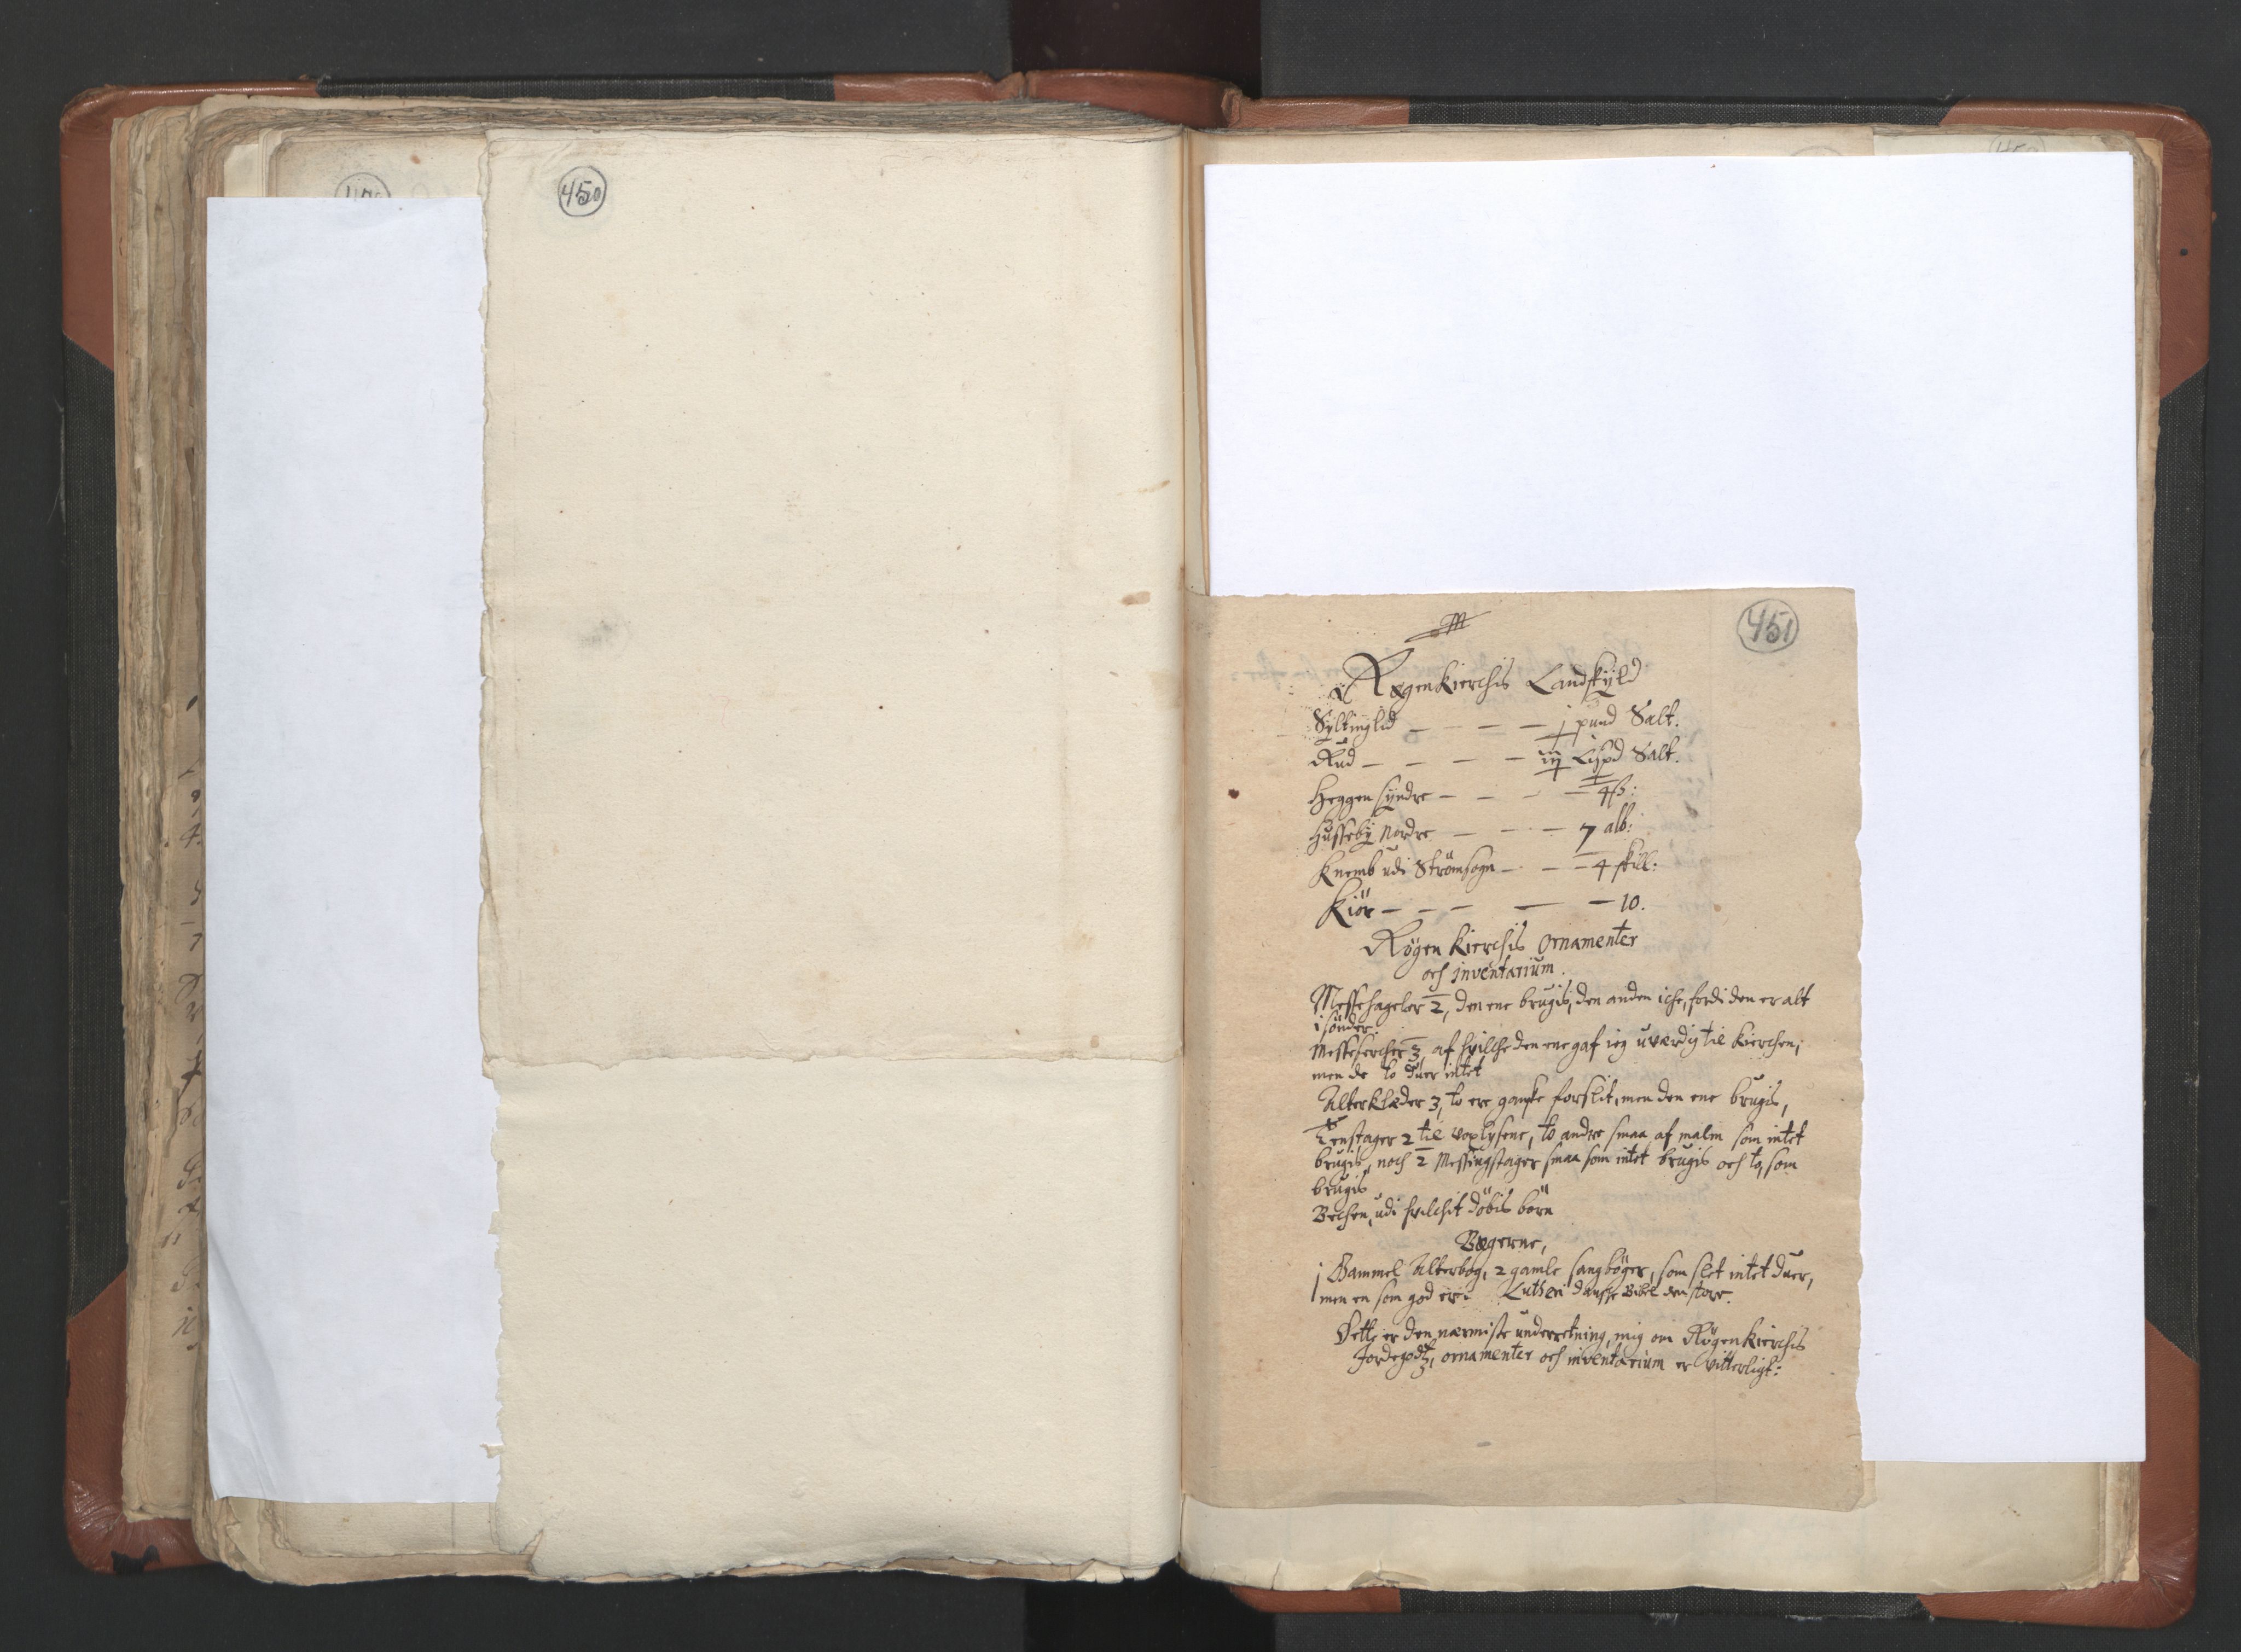 450
451
Røgenkierchis Landskyld
Syltinglid — — — — j pund Salt.
Rud — — — — iij Lispd Salt.
Heggen syndre — — — 4 ß:
Husseby Nordre — — — 7 alb:
Knemb udi Strømsogn — — — 4 skill:
Kiör — — — — — 10.
Røgen Kierchis Ornamenter
och inventarium.
Messehageler 2, den ene brugis, den anden iche, fordi den er alt
i sönder.
Messesercher 3, af huilche den ene gaf ieg uværdig til Kierchen,
men de to duer intet
Alterklæder 3, to ere ganske forslit, men den ene brugis,
Lysestager 2 til voxlysene, to andre smaa af malm som intet
brugis, noch 2 Messingstager smaa som intet brugis och to, som
brugis
Bechen, udi huilchit döbis börn
Bøgerne,
j Gammel Alterbog, 2 gamle sangböger, som slet intet duer,
men en som god er: Lutheri danske Bibel den store.
Dette er den nærmiste underretning, mig om Røgenkierchis
Jordegodtz, ornamenter och inventarium er vitterligt: